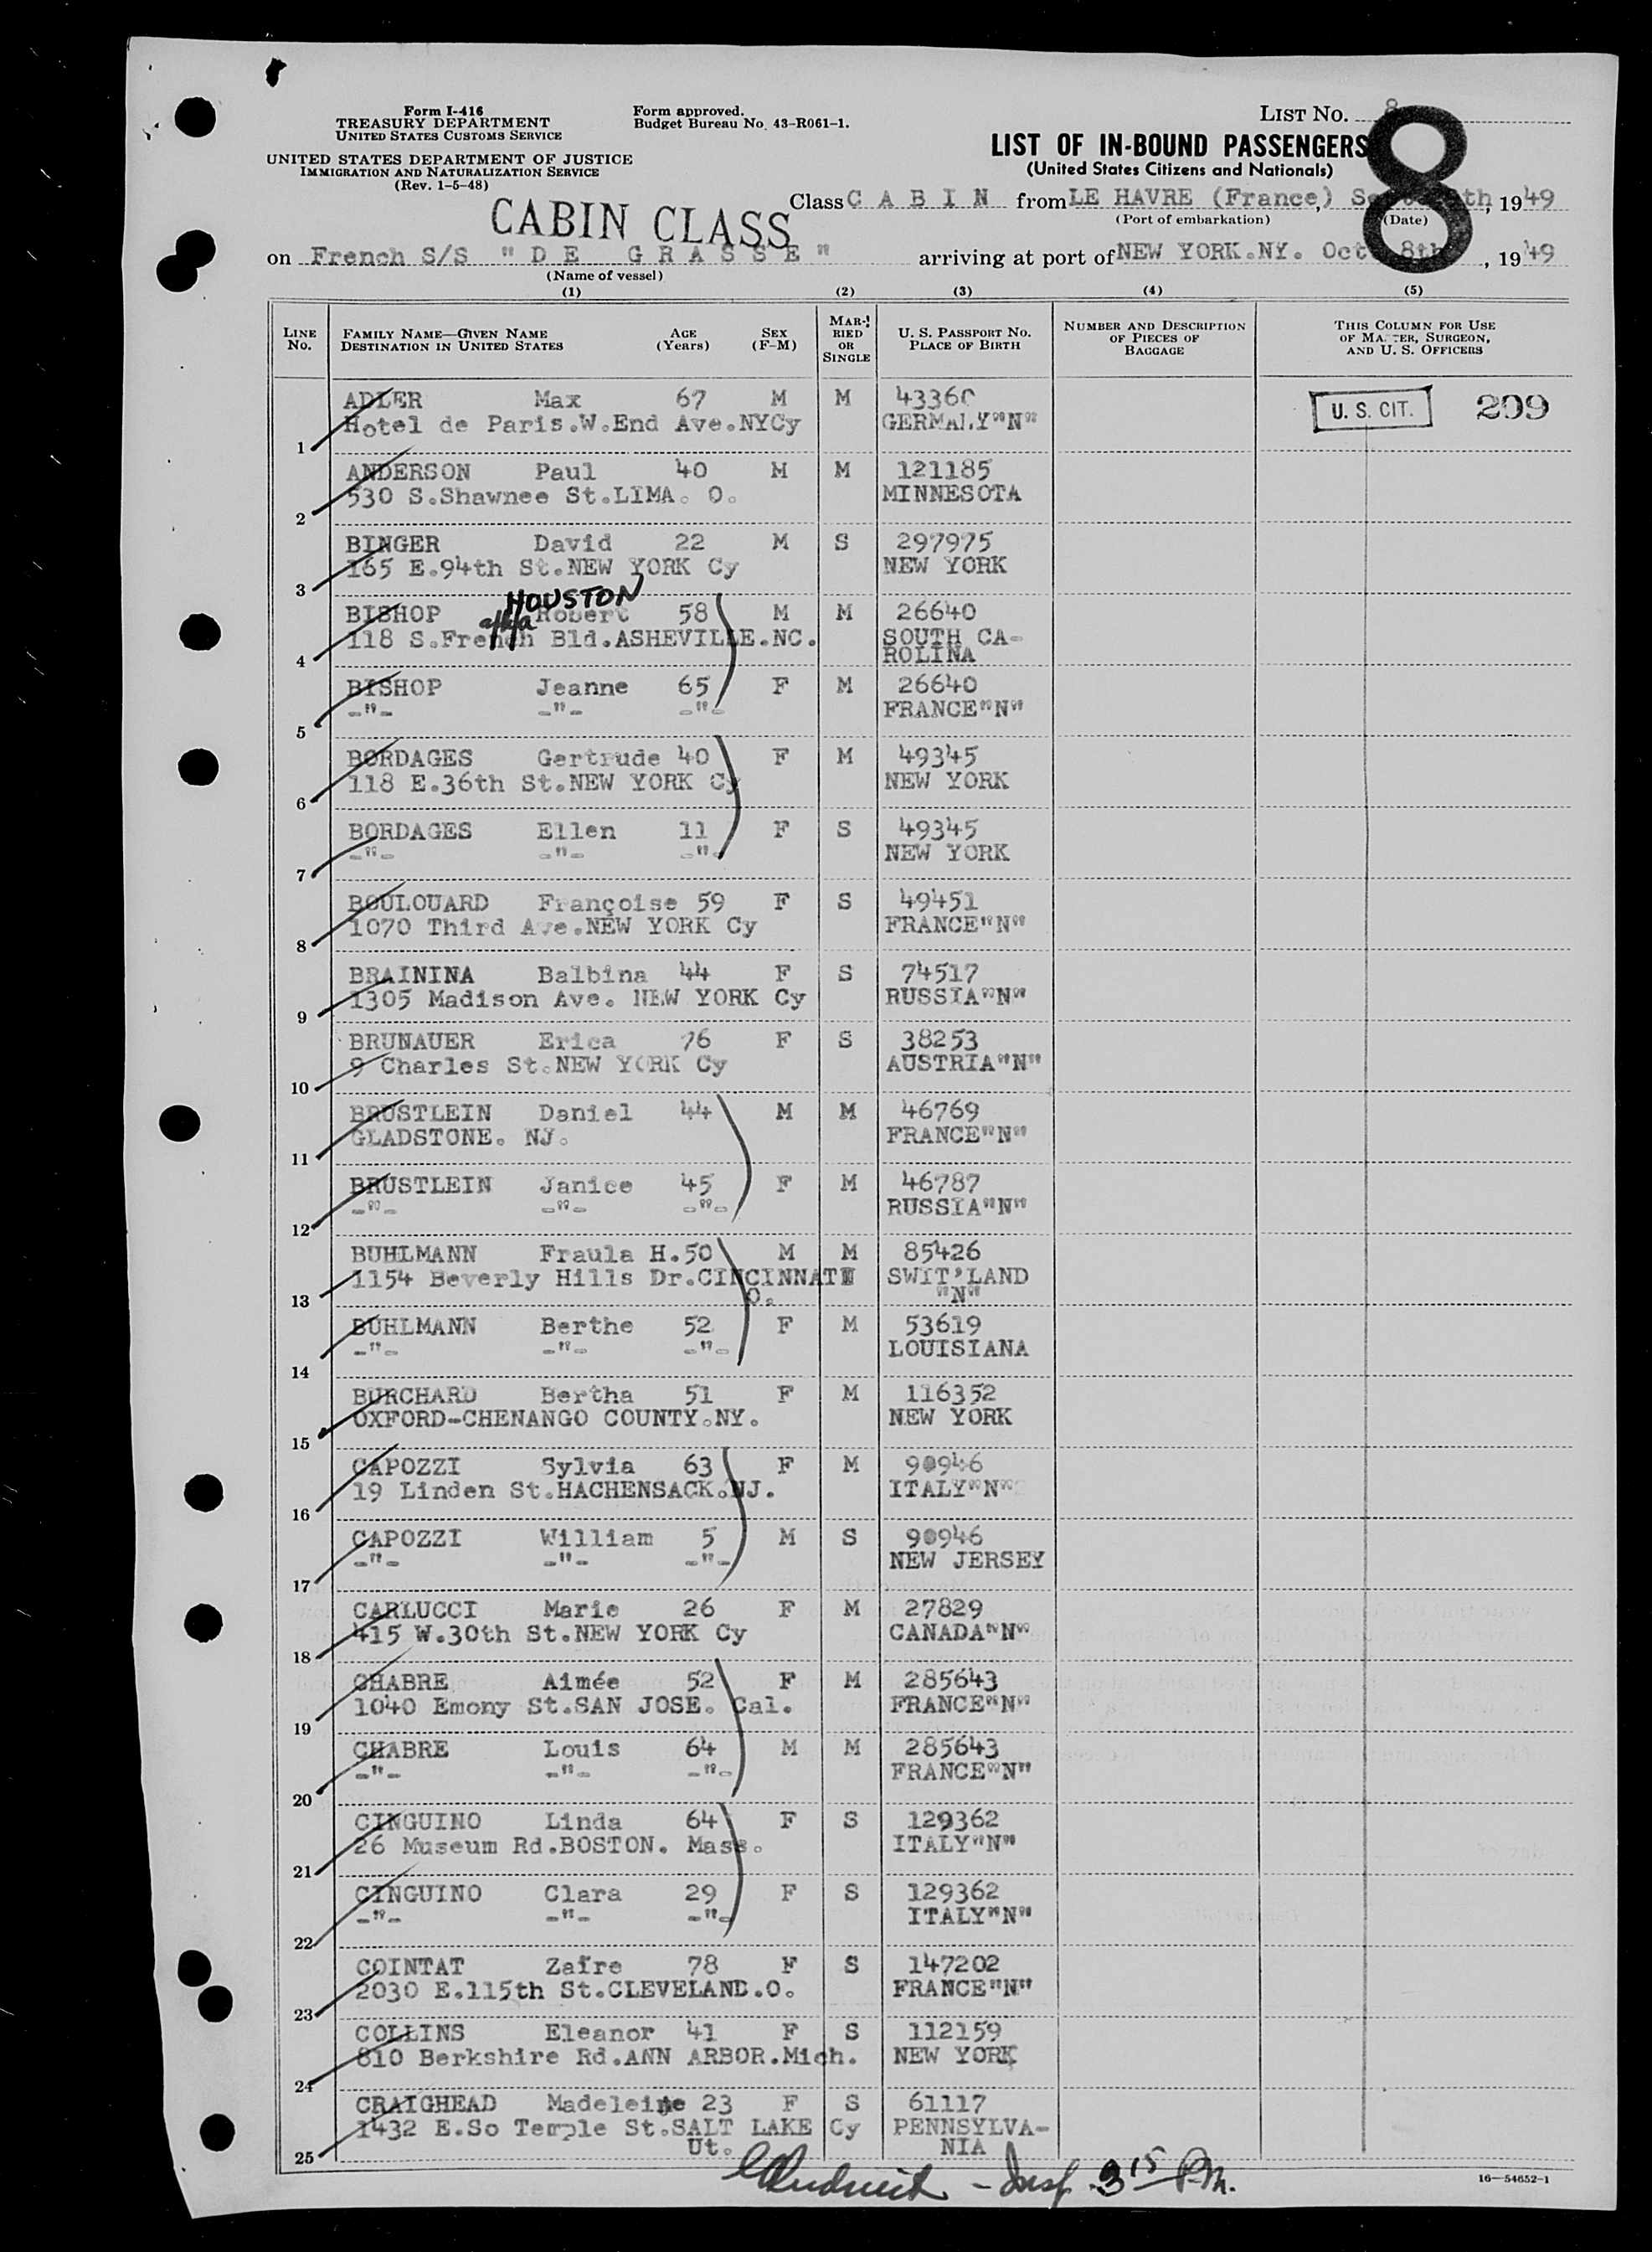 Form I-416
TREASURY DEPARTMENT
UNITED STATES CUSTOMS SERVICE
UNITED STATES DEPARTMENT OF JUSTICE
IMMIGRATION AND NATURALIZATION SERVICE
(Rev. 1-5-48)
Form approved.
Budget Bureau No. 43-R061-1.
LIST No. 8
8
LIST OF IN-BOUND PASSENGERS
(United States Citizens and Nationals)
CABIN CLASS
Class C A B I N from LE HAVRE (France), th, 1949
(Port of embarkation) (Date)
on French S/S "D E G R A S S E" arriving at port of NEW YORK.NY. Oct 8th, 1949
(Name of vessel)
(1) (2) (3) (4) (5)
LINE No. FAMILY NAME—GIVEN NAME DESTINATION IN UNITED STATES AGE (Years) SEX (F-M) MARRIED OR SINGLE U. S. PASSPORT NO. PLACE OF BIRTH NUMBER AND DESCRIPTION OF PIECES OF BAGGAGE THIS COLUMN FOR USE OF MASTER, SURGEON, AND U. S. OFFICERS
ADLER Max 67 M M 43360 U. S. CIT. 209
1 Hotel de Paris.W.End Ave.NYCy GERMANY"N"
ANDERSON Paul 40 M M 121185
2 530 S.Shawnee St.LIMA. O. MINNESOTA
BINGER David 22 M S 297975
3 165 E.94th St.NEW YORK Cy NEW YORK
HOUSTON
BISHOP a/k/a Robert 58 M M 26640
4 118 S.French Bld.ASHEVILLE.NC. SOUTH CA-
ROLINA
BISHOP Jeanne 65 F M 26640
5 -"- -"- -"- FRANCE"N"
BORDAGES Gertrude 40 F M 49345
6 118 E.36th St.NEW YORK Cy NEW YORK
BORDAGES Ellen 11 F S 49345
7 -"- -"- -"- NEW YORK
BOULOUARD Françoise 59 F S 49451
8 1070 Third Ave.NEW YORK Cy FRANCE"N"
BRAININA Balbina 44 F S 74517
9 1305 Madison Ave. NEW YORK Cy RUSSIA"N"
BRUNAUER Erica 76 F S 38253
10 9 Charles St.NEW YORK Cy AUSTRIA"N"
BRUSTLEIN Daniel 44 M M 46769
11 GLADSTONE. NJ. FRANCE"N"
BRUSTLEIN Janice 45 F M 46787
12 -"- -"- -"- RUSSIA"N"
BUHLMANN Fraula H.50 M M 85426
13 1154 Beverly Hills Dr.CINCINNATI SWIT'LAND
O. "N"
BUHLMANN Berthe 52 F M 53619
14 -"- -"- -"- LOUISIANA
BURCHARD Bertha 51 F M 116352
15 OXFORD-CHENANGO COUNTY.NY. NEW YORK
CAPOZZI Sylvia 63 F M 90946
16 19 Linden St.HACHENSACK.NJ. ITALY"N"
CAPOZZI William 5 M S 90946
17 -"- -"- -"- NEW JERSEY
CARLUCCI Marie 26 F M 27829
18 415 W.30th St.NEW YORK Cy CANADA"N"
CHABRE Aimée 52 F M 285643
19 1040 Emony St.SAN JOSE. Cal. FRANCE"N"
CHABRE Louis 64 M M 285643
20 -"- -"- -"- FRANCE"N"
CINGUINO Linda 64 F S 129362
21 26 Museum Rd.BOSTON. Mass. ITALY"N"
CINGUINO Clara 29 F S 129362
22 -"- -"- -"- ITALY"N"
COINTAT Zaïre 78 F S 147202
23 2030 E.115th St.CLEVELAND.O. FRANCE"N"
COLLINS Eleanor 41 F S 112159
24 810 Berkshire Rd.ANN ARBOR.Mich. NEW YORK
CRAIGHEAD Madeleine 23 F S 61117
25 1432 E.So Temple St.SALT LAKE Cy PENNSYLVA-
Ut. NIA
- Insp. 3 15 P.M.
16—54652-1